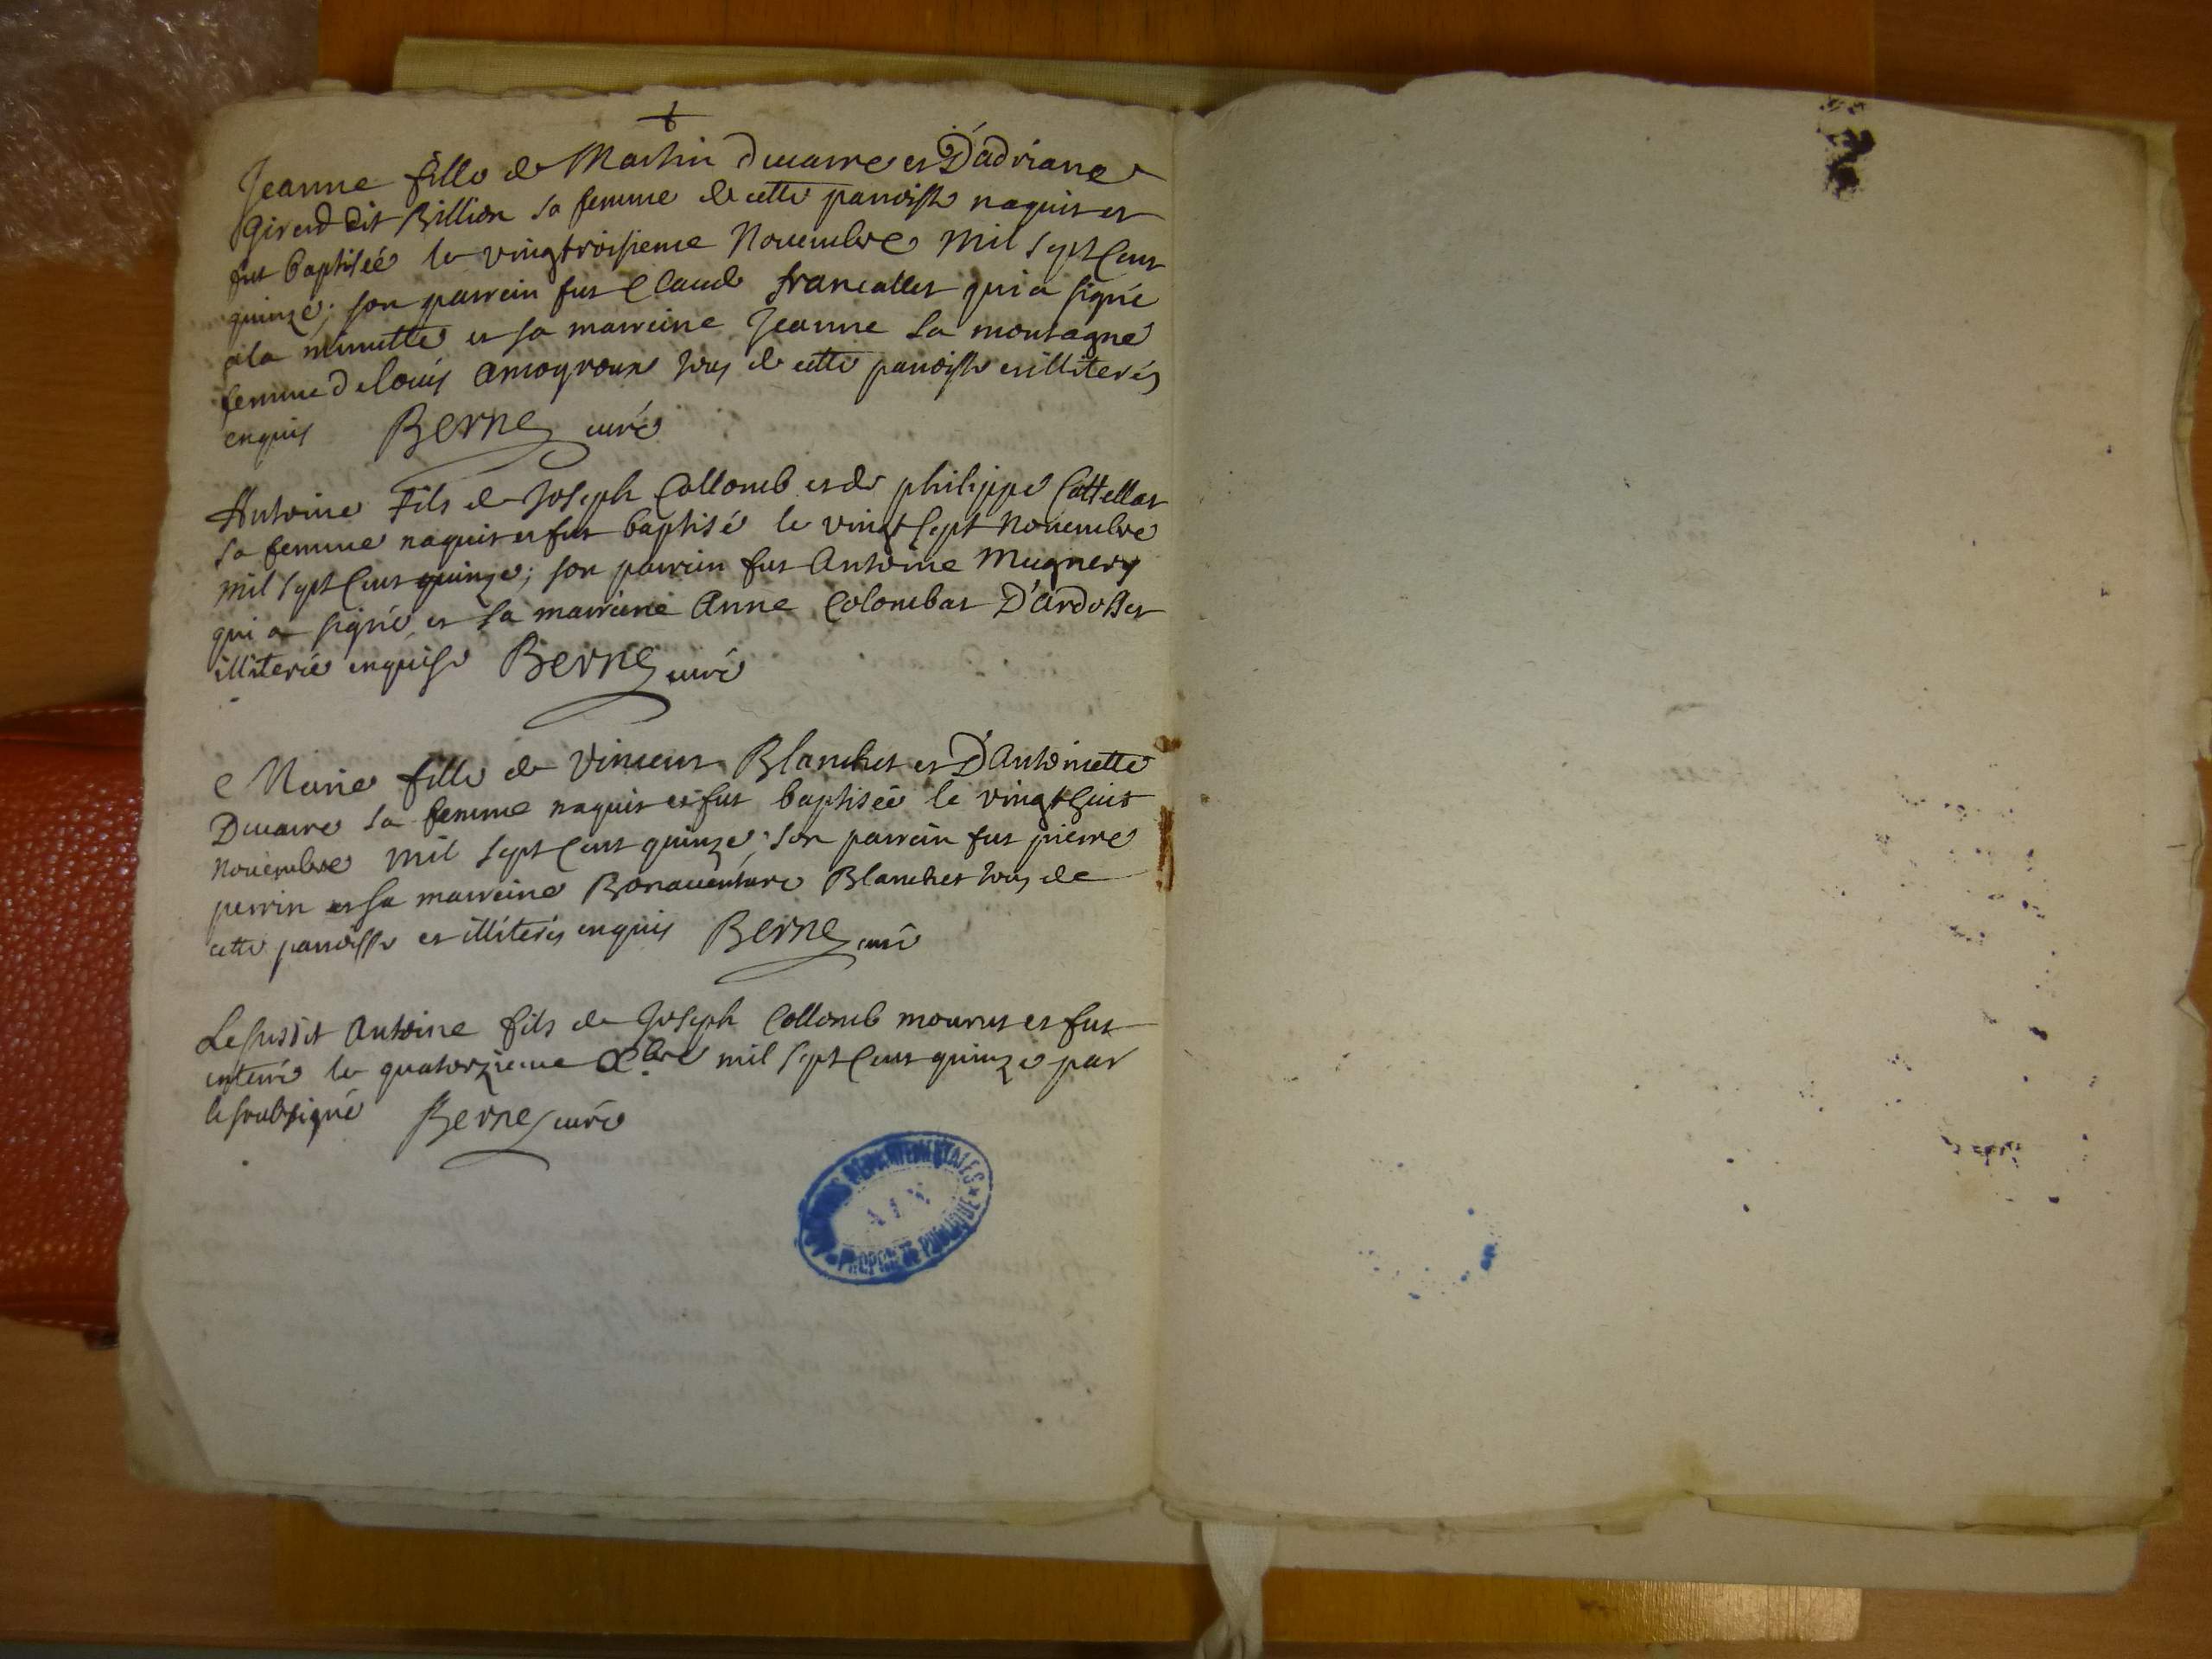 Jeanne fille de Martin Ducarre et D'adriane
Girerd dit Billion sa femme de cette paroisse naquit et
fut baptisée le vingtroisieme Novembre mil sept cent
quinze; son parrein fut Claude francallet qui a signé
a la minutte et sa marreine Jeanne La montagne
femme de louis amoyroux tous de cette paroisse et illiterés
enquis Berne curé
Antoine Fils de Joseph Collomb et de philippe Cattellat
sa femme naquit et fut baptisé le vingt sept Novembre
mil sept cent quinze; son parrein fut Antoine Mugnery
qui a signé et sa marreine Anne Colombat D'ardosset
illiterée enquise Berne curé
Marie fille de Vincent Blanchet et D'Antoinette
Ducarre sa femme naquit et fut baptisée le vingt huit
Novembre mil sept cent quinze; son parrein fut pierre
perrin et sa marreine Bonaventure Blanchet tous de
cette paroisse et illiterés enquis Berne curé
Le susdit Antoine fils de Joseph Collomb mourut et fut
enterré le quatorzieme Xbre mil sept cent quinze par
le soubsigné Berne curé
DEPARTEMENTALES
AIN
PROPRIETE PUBLIQUE